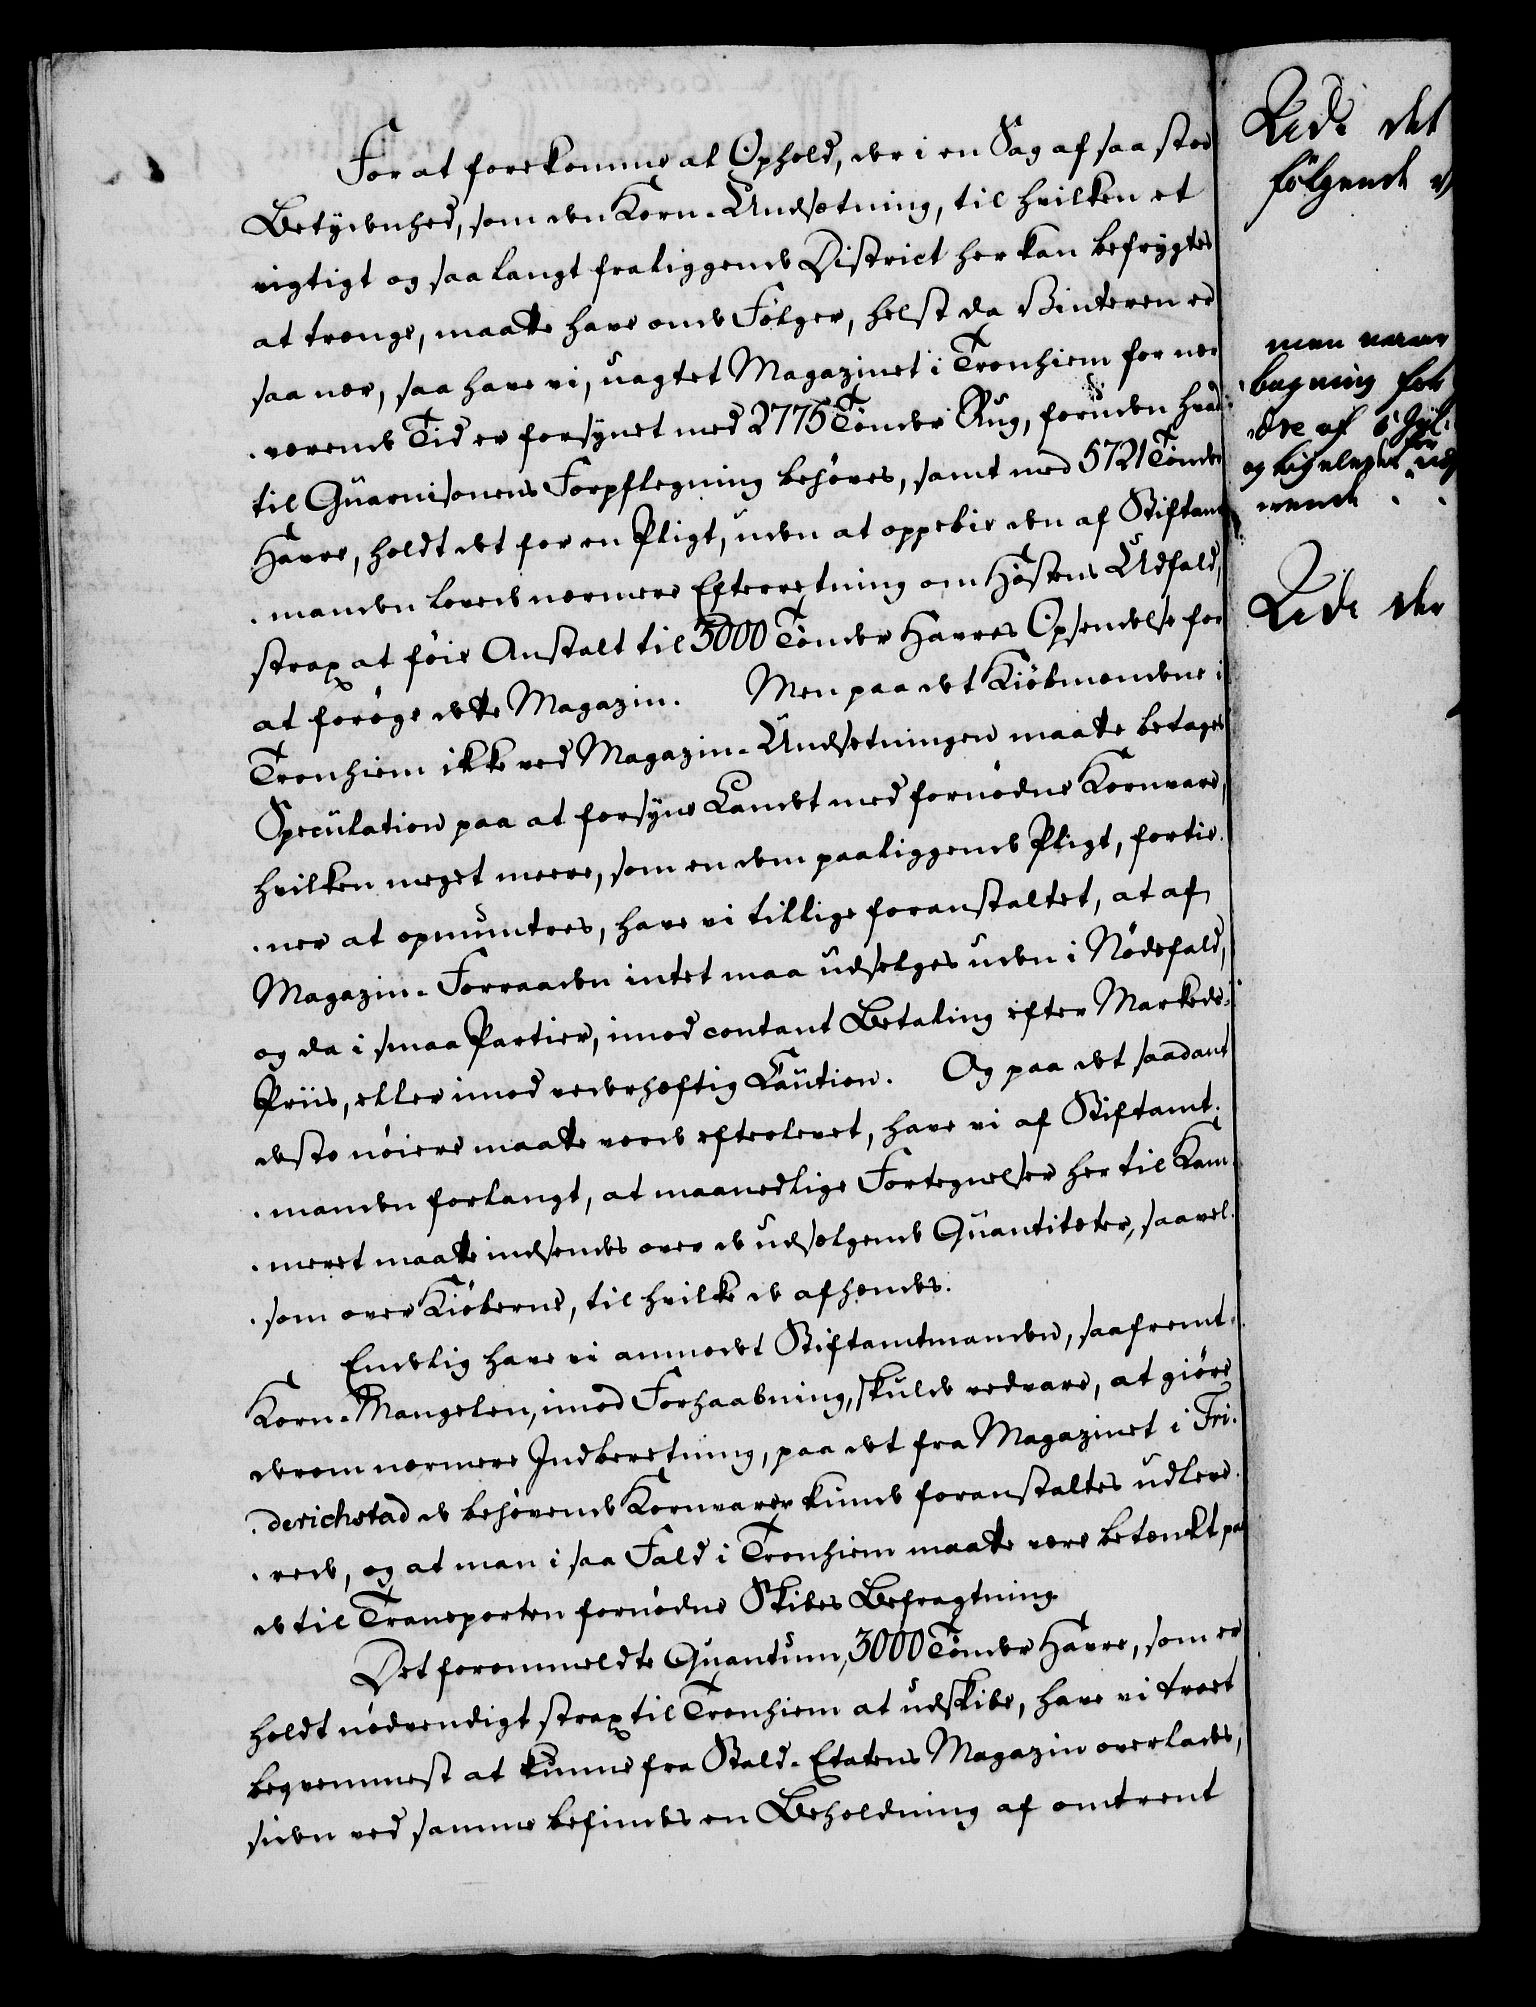 For at forekomme al Ophold, der i en Sag af saa stor
Betydenhed, som den Korn-Undsætning, til hvilken et
vigtigt og saa langt fraliggende District her kan befrygtes
at trænge, maatte have onde Følger, helst da Vinteren er
saa nær, saa have vi, uagtet Magazinet i Tronhiem for nær-
værende Tid er forsynet med 2775 Tønder Rug, foruden hvad
til Guarnisonens Forpflegning behøves, samt med 5721 Tønder
Havre, holdt det for en Pligt, uden at oppebie den af Stiftamt-
manden lovede nærmere Efterretning om Høstens Udfald,
strax at føie Anstalt til 3000 Tønder Havres Opsendelse for
at forøge dette Magazin. Men paa det Kiøbmændene i
Tronhiem ikke ved Magazin-Undsætningen maatte betages
Speculation paa at forsyne Landet med fornødne Kornvare,
hvilken meget meere, som en dem paaliggende Pligt, fortie-
ner at opmuntres, have vi tillige foranstaltet, at af
Magazin-Forraaden intet maa udsælges uden i Nødsfald,
og da i smaa Partier, imod contant Betaling efter Markeds-
Priis, eller imod vederhæftig Caution. Og paa det saadant
desto nøiere maatte vorde efterlevet, have vi af Stiftamt-
manden forlangt, at maanedlige Fortegnelser her til Kam-
meret maatte indsendes over de udsælgende Quantiteter, saavel-
som over Kiøberne, til hvilke de afhændes.
Endelig have vi anmodet Stiftamtmanden, saafremt
Korn-Mangelen, imod Forhaabning, skulde vedvare, at giøre
derom nærmere Indberetning, paa det fra Magazinet i Fri-
derichstad de behøvende Kornvarer kunde foranstaltes udleve-
rede, og at man i saa Fald i Tronhiem maatte være betænkt paa
de til Transporten fornødne Skibes Befragtning
Det forommeldte Quantum, 3000 Tønder Havre, som er
holdt nødvendigt strax til Tronhiem at udskibe, have vi troet
beqvemmest at kunne fra Stald-Etatens Magazin overlades,
siden ved samme befindes en Beholdning af omtrent
det
følgende
men